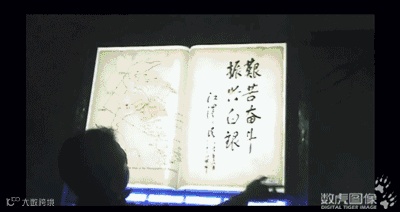 艰苦奋斗
振兴白银
江泽民
大数跨境
数虎图像
DIGITAL TIGER IMAGE